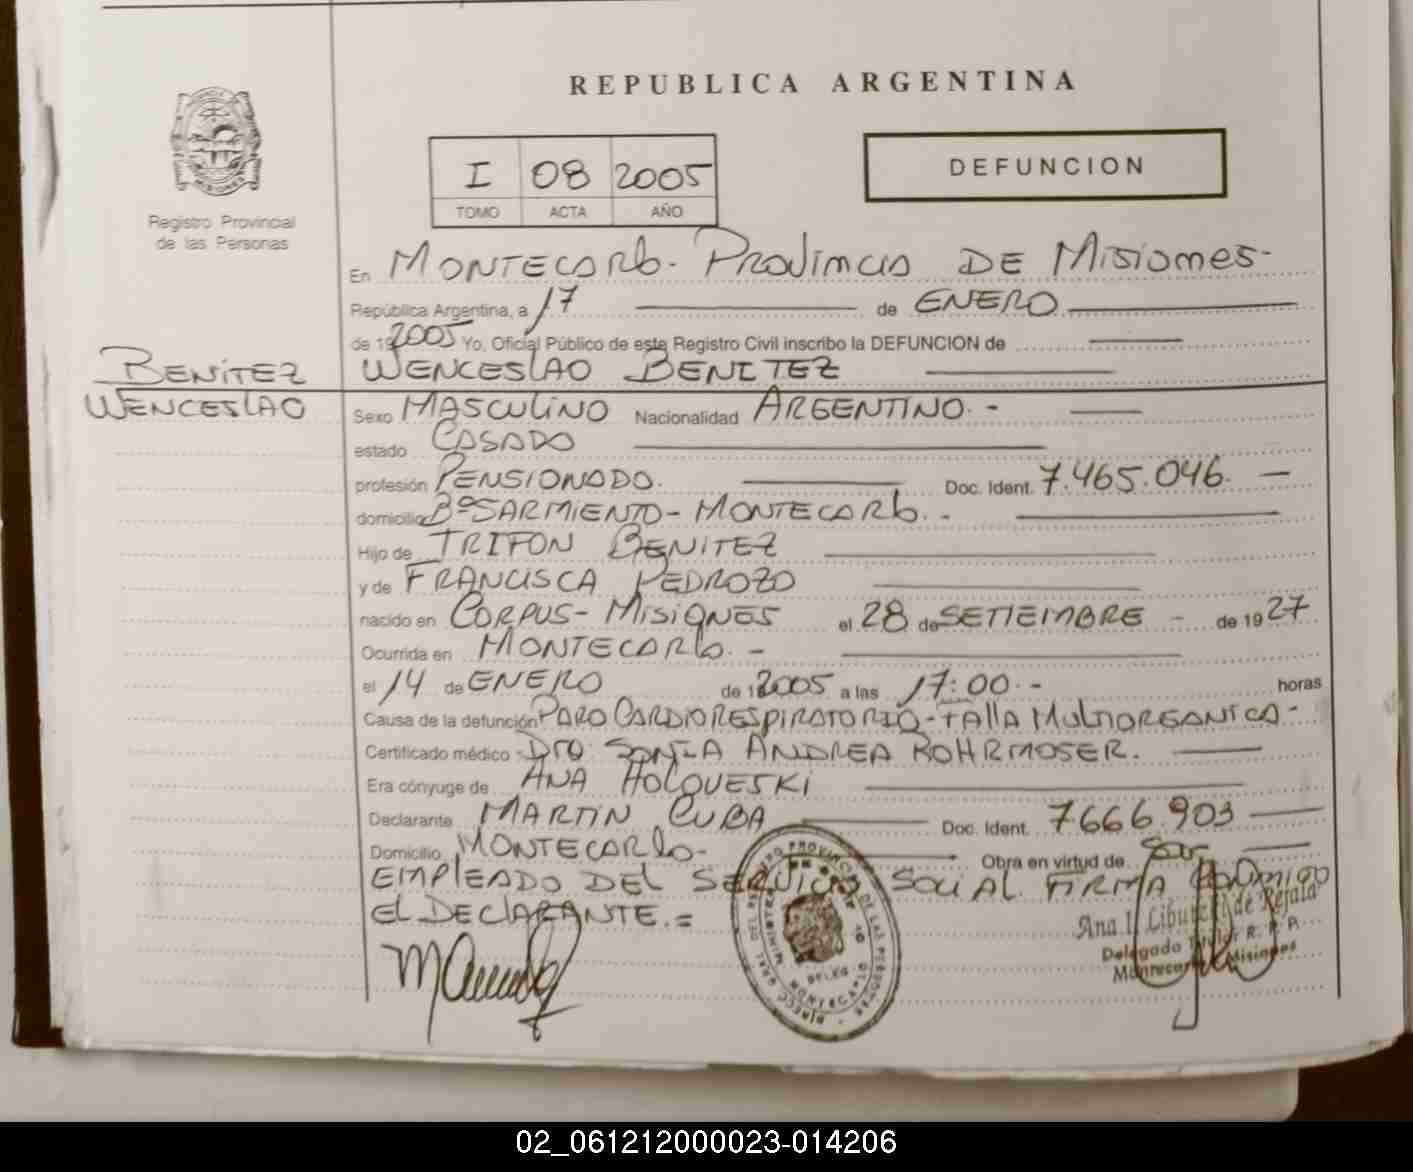 REPUBLICA ARGENTINA
I 08 2005
TOMO ACTA AÑO
DEFUNCION
Registro Provincial
de las Personas
En MONTECARLO - PROVINCIA DE MISIONES -
República Argentina, a 17 de ENERO
de 19 2005 Yo, Oficial Público de este Registro Civil inscribo la DEFUNCION de
BENITEZ
WENCESLAO
WENCESLAO BENITEZ
Sexo MASCULINO Nacionalidad ARGENTINO. -
estado CASADO
profesión PENSIONADO. Doc. Ident. 7.465.046. -
domicilio Bº SARMIENTO - MONTECARLO. -
Hijo de TRIFON BENITEZ
y de FRANCISCA PEDROZO
nacido en CORPUS - MISIONES el 28 de SETIEMBRE - de 1927
Ocurrida en MONTECARLO. -
el 14 de ENERO de 1 2005 a las 17:00. - horas
Causa de la defunción PARO CARDIORESPIRATORIO - FALLA MULTIORGANICA -
Certificado médico DRA. SONIA ANDREA ROHRMOSER.
Era cónyuge de ANA HOLOVESKI
Declarante MARTIN CUBA Doc. Ident. 7666.903
Domicilio MONTECARLO -
Obra en virtud de Ser
EMPLEADO DEL SERVICIO SOCIAL FIRMA CONMIGO
EL DECLARANTE. =
Ana I. de Rejala
Delegado Titular R. P. P.
Montecarlo Misiones
MONTECARLO
02_061212000023-014206